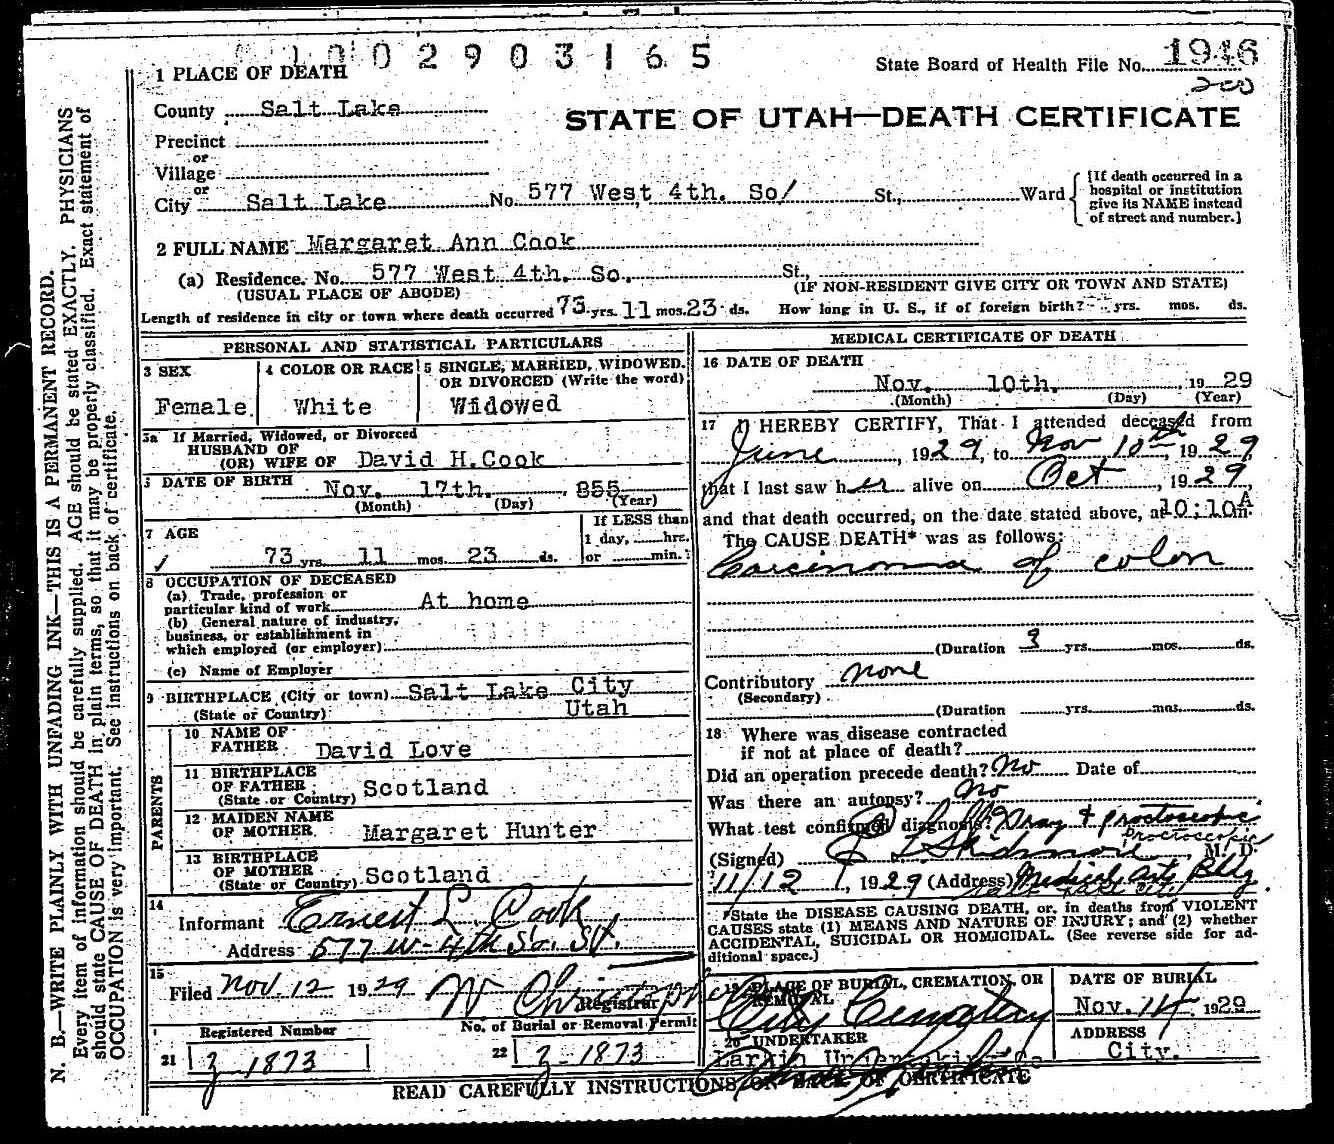 1002903165
State Board of Health File No. 1946
200
1 PLACE OF DEATH
STATE OF UTAH—DEATH CERTIFICATE
County Salt Lake
Precinct
or
Village
or
City Salt Lake No. 577 West 4th. So/ St., Ward
[If death occurred in a
hospital or institution
give its NAME instead
of street and number.]
2 FULL NAME Margaret Ann Cook
(a) Residence. No. 577 West 4th. So., St.,
(USUAL PLACE OF ABODE) (IF NON-RESIDENT GIVE CITY OR TOWN AND STATE)
Length of residence in city or town where death occurred 73 yrs. 11 mos. 23 ds. How long in U. S., if of foreign birth? yrs. mos. ds.
PERSONAL AND STATISTICAL PARTICULARS
3 SEX
Female
4 COLOR OR RACE
White
5 SINGLE, MARRIED, WIDOWED.
OR DIVORCED (Write the word)
Widowed
5a If Married, Widowed, or Divorced
HUSBAND OF
(OR) WIFE OF David H.Cook
DATE OF BIRTH Nov. 17th. 855
(Month) (Day) (Year)
7 AGE
73 yrs. 11 mos. 23 ds.
If LESS than
1 day, hrs.
or min.
8 OCCUPATION OF DECEASED
(a) Trade, profession or
particular kind of work At home
(b) General nature of industry,
business, or establishment in
which employed (or employer)
(c) Name of Employer
9 BIRTHPLACE (City or town) Salt Lake City
(State or Country) Utah
PARENTS
10 NAME OF
FATHER David Love
11 BIRTHPLACE
OF FATHER
(State or Country) Scotland
12 MAIDEN NAME
OF MOTHER Margaret Hunter
13 BIRTHPLACE
OF MOTHER
(State or Country) Scotland
14
Informant Ernest L Cook
Address 577 W-4th So. St.
15
Filed Nov 12 1929 W Christopher
Registrar
Registered Number
21 z-1873
No. of Burial or Removal Permit
22 z-1873
MEDICAL CERTIFICATE OF DEATH
16 DATE OF DEATH
Nov. 10th. , 19 29
(Month) (Day) (Year)
17 I HEREBY CERTIFY, That I attended deceased from
June , 1929, to Nov 10th, 1929
that I last saw her alive on Oct , 1929,
and that death occurred, on the date stated above, at 10:10A m.
The CAUSE DEATH* was as follows:
Carcinoma of colon
(Duration 3 yrs. mos. ds.
Contributory none
(Secondary)
(Duration yrs. mos. ds.
18 Where was disease contracted
if not at place of death?
Did an operation precede death? No Date of
Was there an autopsy? No
What test confirmed diagnosis? Xray & proctoscopic
proctoscopic
(Signed) L Skidmore M. D.
11/12 , 1929 (Address) Medical Arts Bldg
*State the DISEASE CAUSING DEATH, or, in deaths from VIOLENT
CAUSES state (1) MEANS AND NATURE OF INJURY; and (2) whether
ACCIDENTAL, SUICIDAL OR HOMICIDAL. (See reverse side for ad-
ditional space.)
19 PLACE OF BURIAL, CREMATION, OR
REMOVAL
City Cemetary
DATE OF BURIAL
Nov. 14 1929
20 UNDERTAKER
Larkin Undertaking Co
ADDRESS
City.
READ CAREFULLY INSTRUCTIONS ON BACK OF CERTIFICATE
N. B.—WRITE PLAINLY WITH UNFADING INK—THIS IS A PERMANENT RECORD.
Every item of information should be carefully supplied. AGE should be stated EXACTLY. PHYSICIANS
should state CAUSE OF DEATH in plain terms, so that it may be properly classified. Exact statement of
OCCUPATION is very important. See instructions on back of certificate.